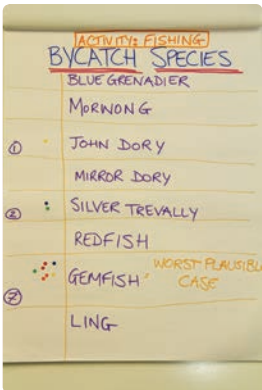 ACTIVITY: FISHING
BYCATCH SPECIES
BLUE GRENADIER
MORWONG
① JOHN DORY
MIRROR DORY
② SILVER TREVALLY
REDFISH
WORST PLAUSIBLE
⑦ GEMFISH CASE
LING